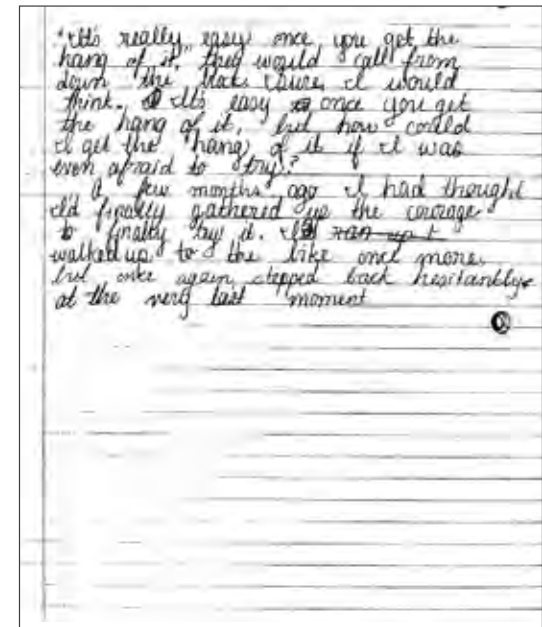 "It's really easy once you get the
hang of it, they would call from
down the I would
think. It's easy once you get
the hang of it, but how could
I get the hang of it if I was
even afraid to try?
A few months ago I had thought
I'd finally gathered up the courage
to finally try it. I ran up t
walked up to the bike once more,
but once again stepped back hesitantly
at the very last moment